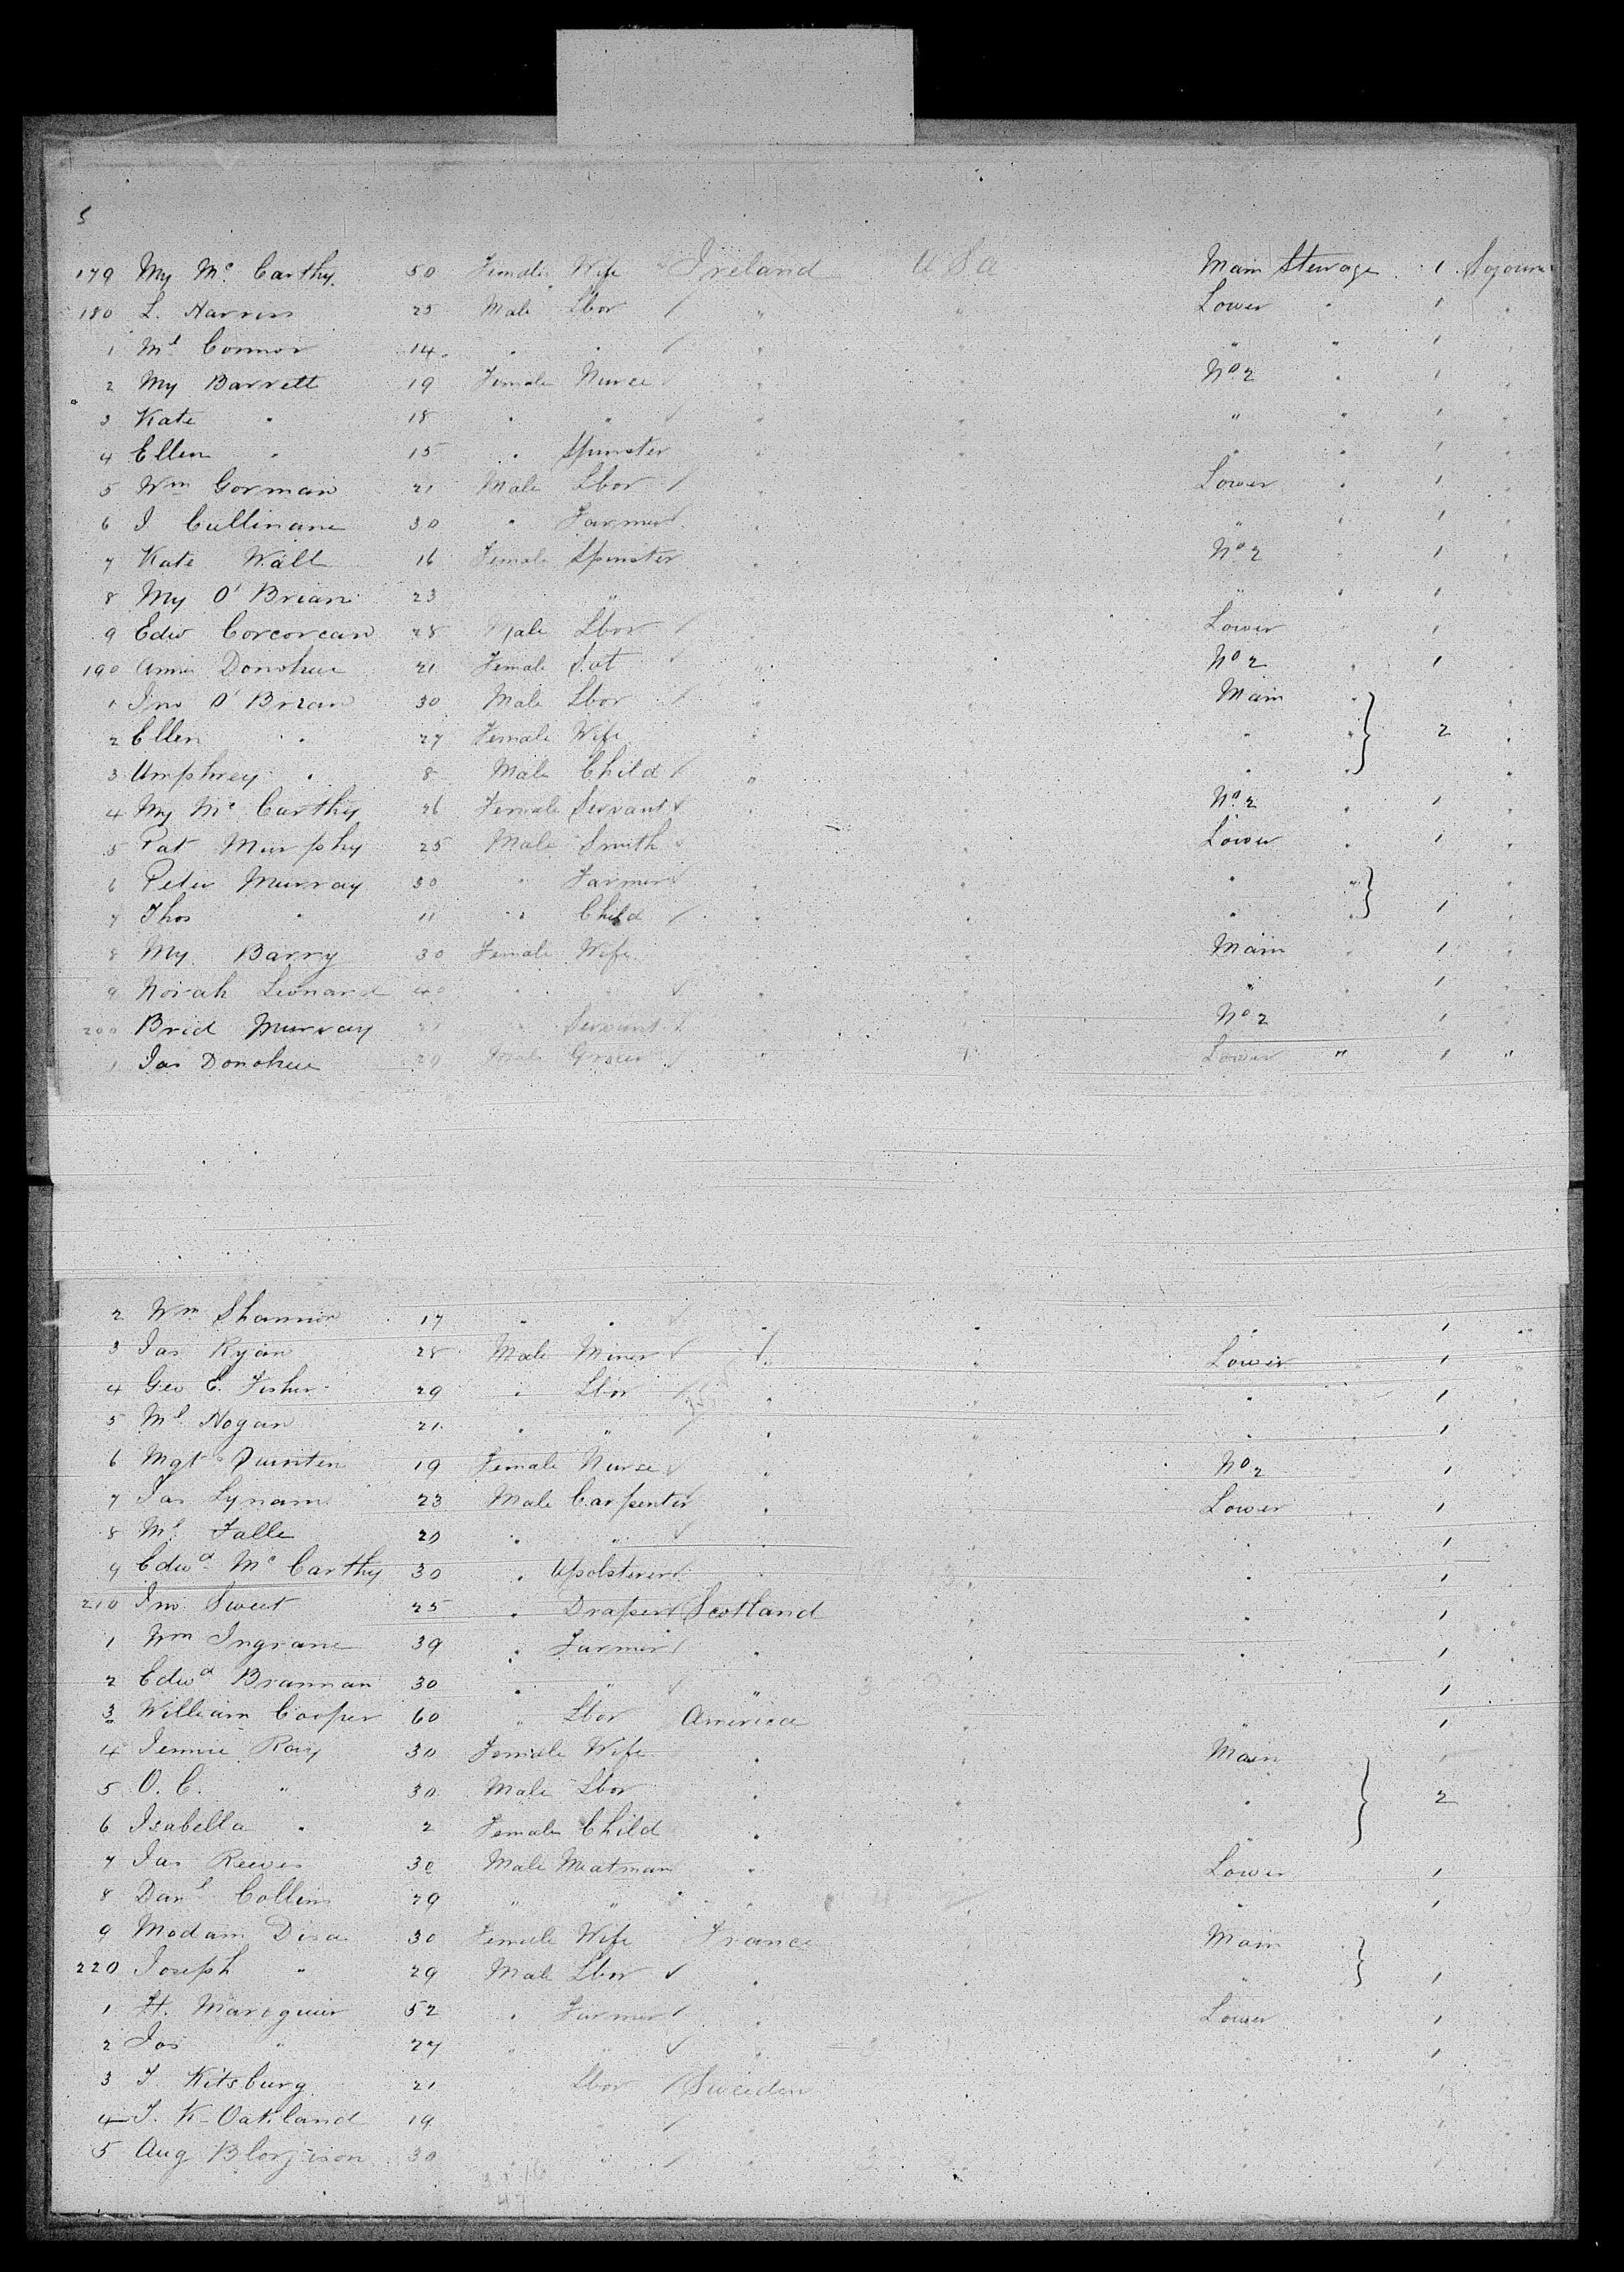 5
179 My Mc Carthy 50 Female Wife Ireland U S a Main Sterage 1 Sojourn
180 L. Harris 25 Male Lbor " " Lower " 1 "
1 Ml Connor 14 " " " " " " 1 "
2 My Barrett 19 Female Nurce " " No 2 " 1 "
3 Kate " 18 " " " " " " 1 "
4 Ellen " 15 " Spinster " " " " 1 "
5 Wm Gorman 21 Male Lbor " " Lower " 1 "
6 J Cullinane 30 " Farmer " " " " 1 "
7 Kate Wall 16 Female Spinster " " No 2 " 1 "
8 My O' Brian 23 " " " " 1 "
9 Edw Corcorcan 28 Male Lbor " " Lower " 1 "
190 Annie Donohue 21 Female Svt " " No 2 " 1
1 Jno O' Brian 30 Male Lbor " " Main " "
2 Ellen " 27 Female Wife " " " " 2 "
3 Umphrey " 8 Male Child " " " " "
4 My Mc Carthy 26 Female Servant " " No 2 " 1 "
5 Pat Murphy 25 Male Smith " Lower " 1 "
6 Peter Murray 30 " Farmer " " " " "
7 Thos " 11 " Child " " " " 1 "
8 My Barry 30 Female Wife " Main " 1 "
9 Norah Leonard 40 " " " " " " 1 "
200 Brid Murray " Servant " " No 2 " 1 "
1 Jas Donohue 20 Male Grocer " " Lower " 1 "
2 Wm Shannon 17 " " " " " 1 "
3 Jas Ryan 28 Male Miner " " Lower " 1 "
4 Geo E. Fisher 29 " Lbor " " 1 "
5 Ml Hogan 21 " " " " " 1 "
6 Mgt Quinten 19 Female Nurse " " No 2 1 "
7 Jas Lynam 23 Male Carpenter " Lower 1 "
8 Ml Falle 20 " " " 1 "
9 Edwd Mc Carthy 30 " Upolsterer " " 1 "
210 Jno Sweet 25 " Draper Scotland " " 1 "
1 Wm Ingrane 39 " Farmer " " " 1 "
2 Edwd Brannan 30 " " " " 1 "
3 William Cooper 60 " Lbor America " " 1 "
4 Jennie Ray 30 Female Wife " " Main
5 O. C. " 30 Male Lbor " " " 2 "
6 Isabella " 2 Female Child " " "
7 Jas Reeves 30 Male Meatman " " Lower 1 "
8 Danl Collins 29 " " " " " 1 "
9 Madam Disa 30 Female Wife France " Main "
220 Joseph " 29 Male Lbor " " " 1 "
1 H. Mareguier 52 " Farmer " Lower " 1 "
2 Jos " 27 " " " " 1 "
3 J Kitsburg 21 " Lbor Sweeden " " 1 "
4 J. K Oakland 19 " " " " 1 "
5 Aug 30 " " " 1 "
47